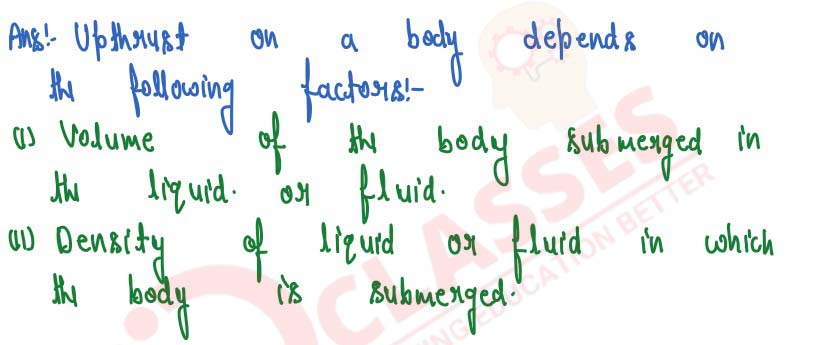 Ans:- Upthrust on a body depends on
the following factors:-
(i) Volume of the body submerged in
the liquid. or fluid.
(ii) Density of liquid or fluid in which
the body is submerged.
CLASSES
ING EDUCATION BETTER